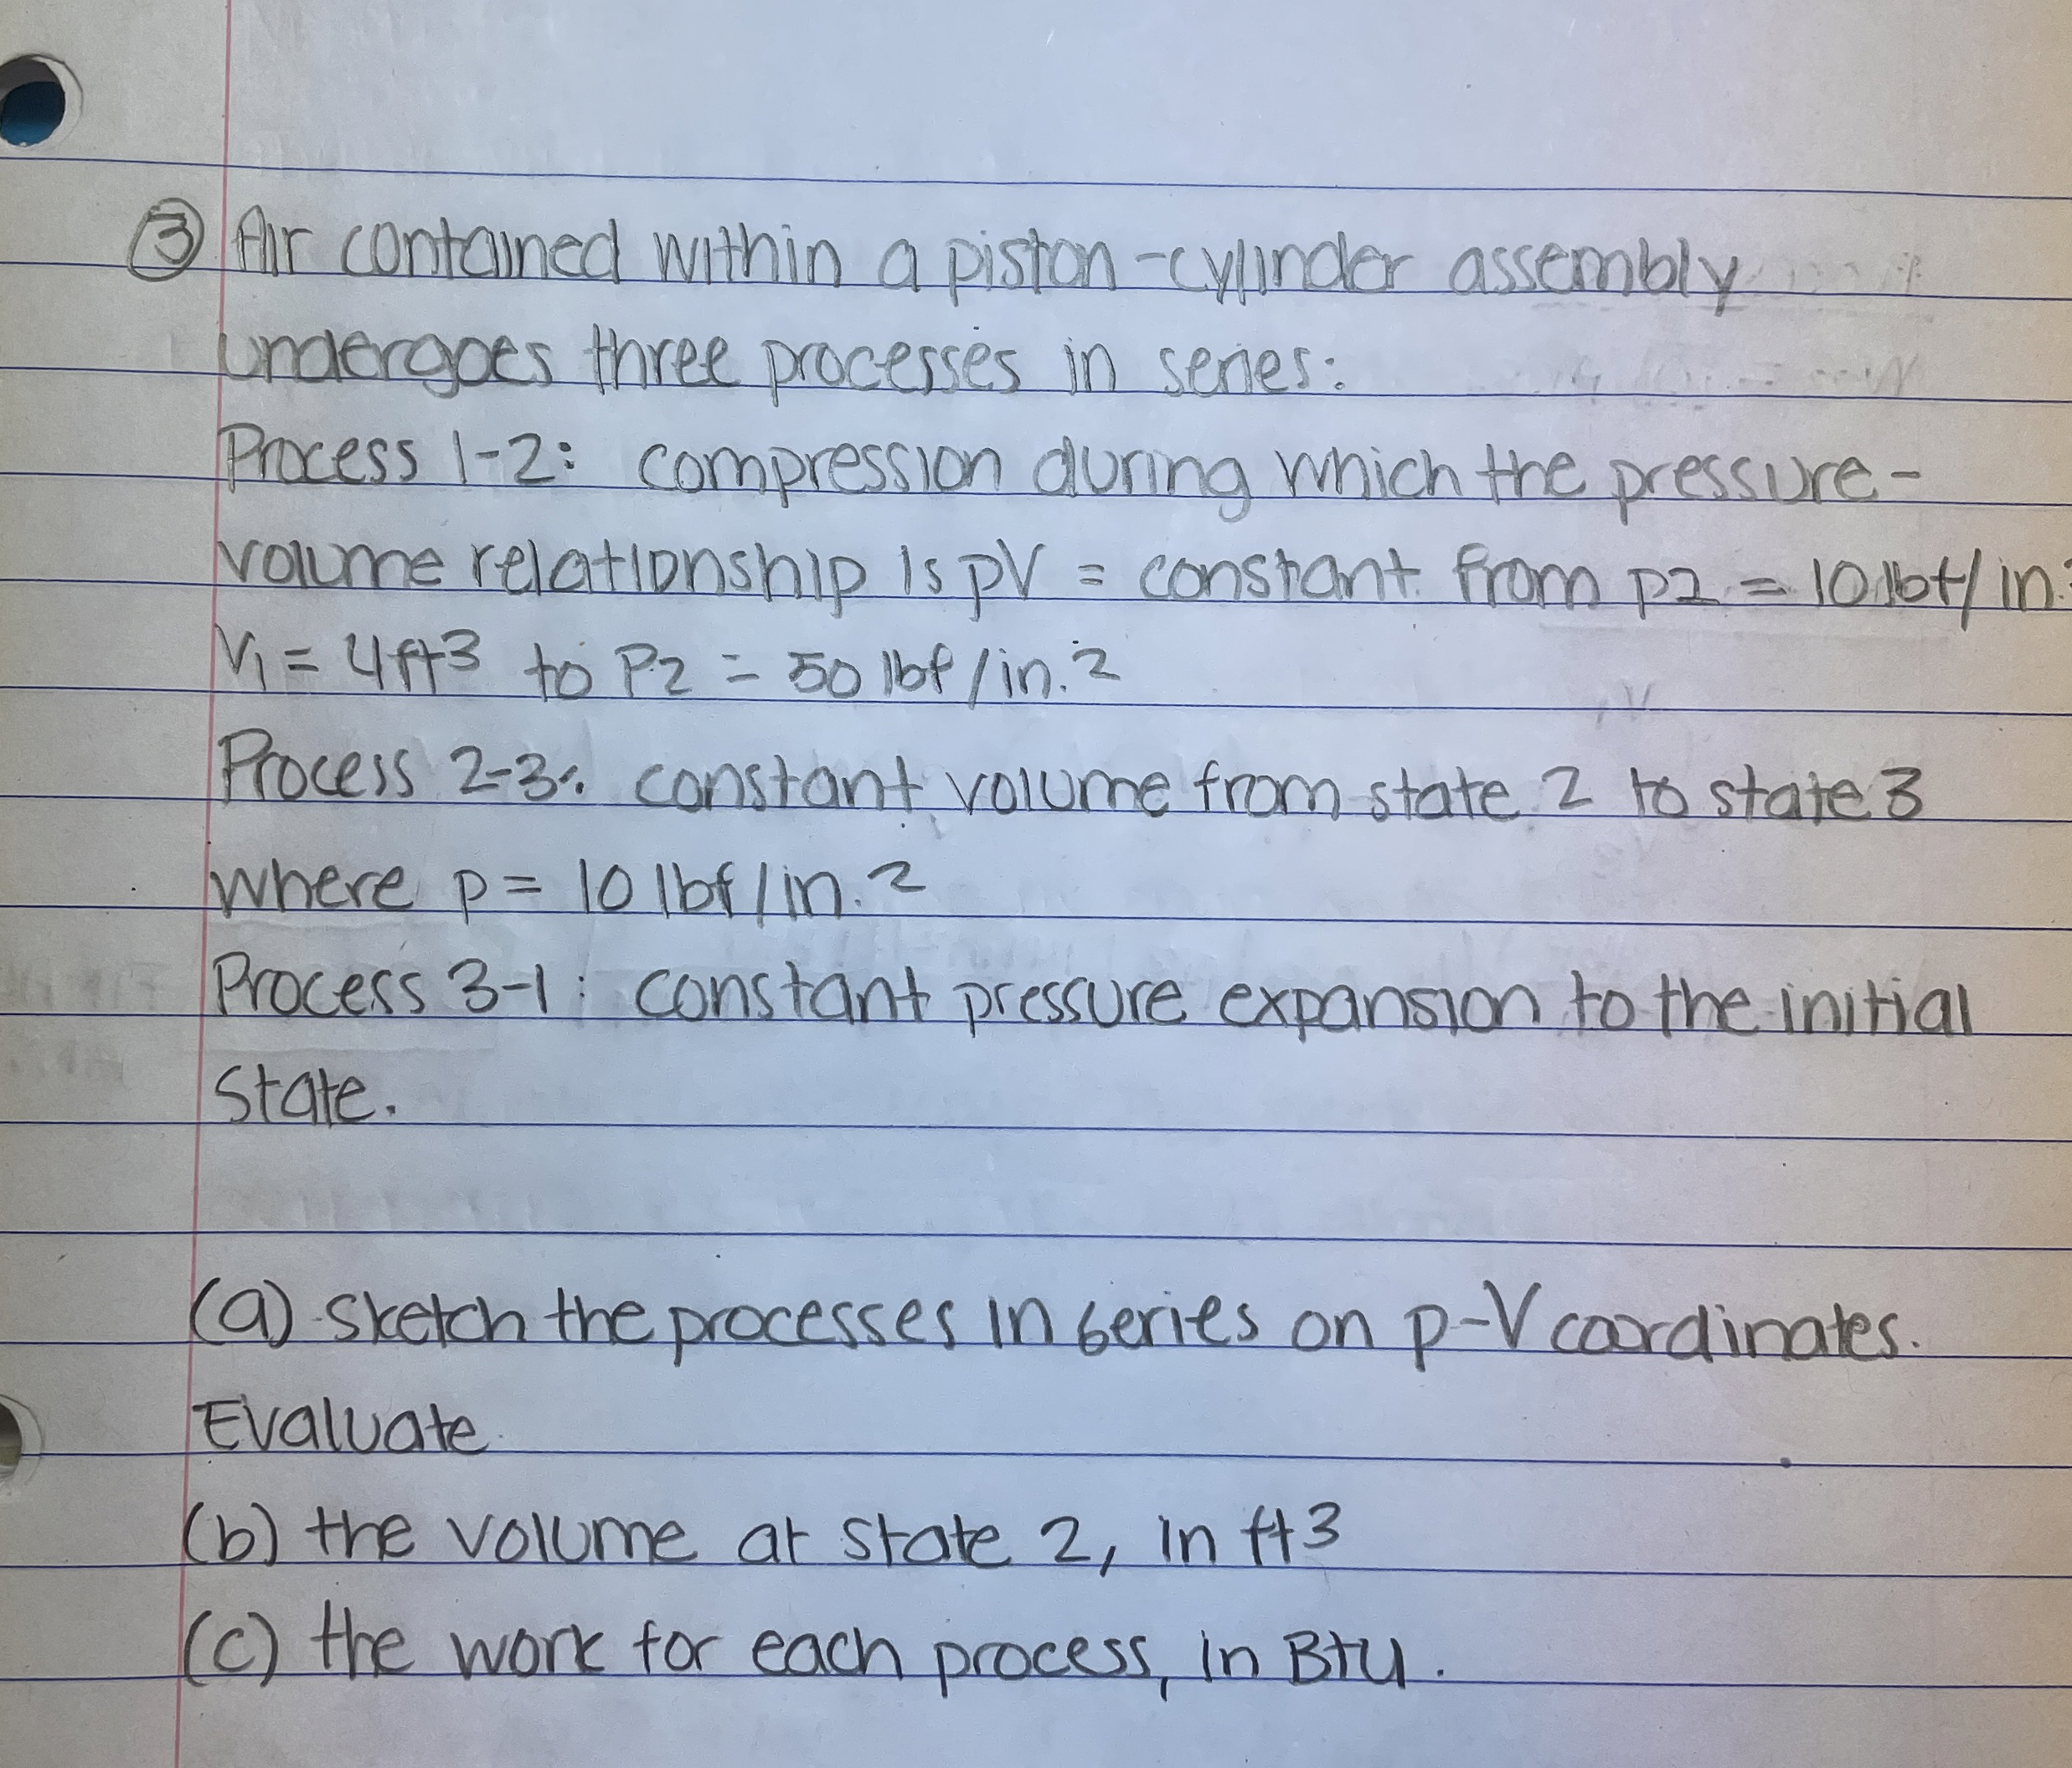 ③ Air contained within a piston-cylinder assembly
undergoes three processes in series:
Process 1-2: compression during which the pressure-
volume relationship is pV = constant from p2 = 10 lbf/in.2
V1 = 4ft3 to P2 = 50 lbf/in.2
Process 2-3: constant volume from state 2 to state 3
where p = 10 lbf/in.2
Process 3-1: constant pressure expansion to the initial
state.
(a) sketch the processes in series on p-V coordinates.
Evaluate
(b) the volume at state 2, in ft3
(c) the work for each process, in Btu.